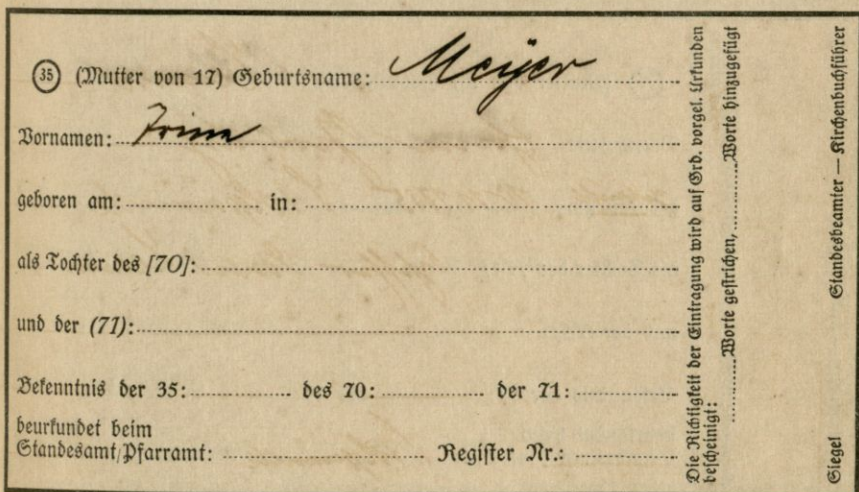 35 (Mutter von 17) Geburtsname: Meÿer
Vornamen: Trina
geboren am: in:
als Tochter des [70]:
und der (71):
Bekenntnis der 35: des 70: der 71:
beurkundet beim
Standesamt/Pfarramt: Register Nr.:
Die Richtigkeit der Eintragung wird auf Grd. vorgel. Urkunden
bescheinigt: Worte gestrichen, Worte hinzugefügt
Siegel Standesbeamter — Kirchenbuchführer